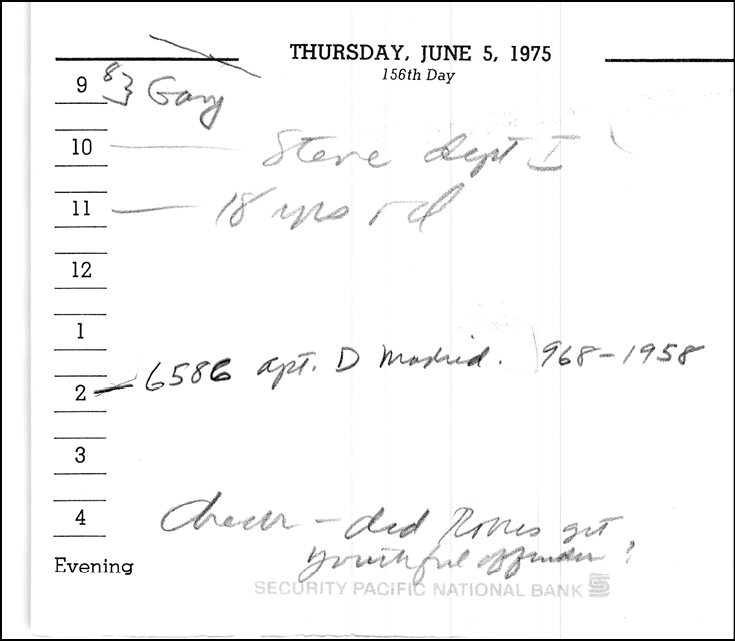 THURSDAY, JUNE 5, 1975
156th Day
9 8} Gary
10 Steve dept I
11 18 yrs old
12
1
6586 apt. D Madrid. 968-1958
2
3
4 Check - did Robles get
youthful offender?
Evening
SECURITY PACIFIC NATIONAL BANK